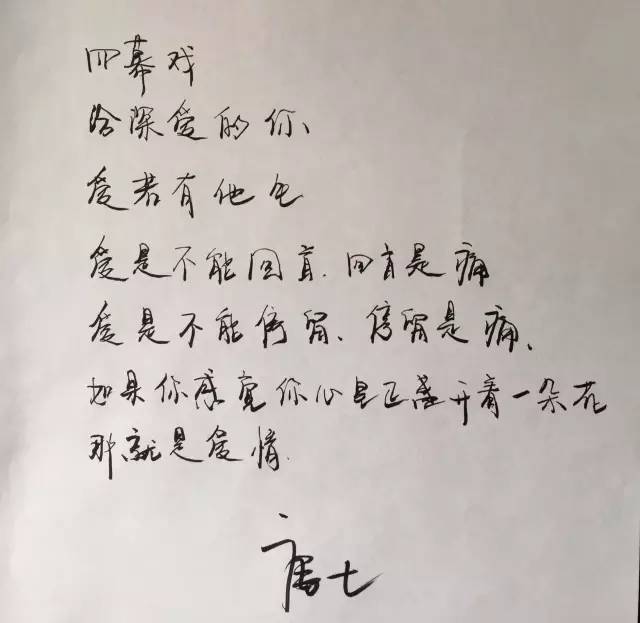 四幕戏
给深爱的你、
爱若有他生
爱是不能回首.回首是痛
爱是不能停留、停留是痛、
如果你感觉你心里正盛开着一朵花
那就是爱情.
唐七